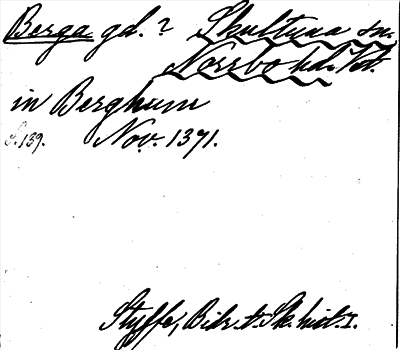 Berga gd. ? Skultuna sn.
Norrbo hd. Vstm.
in Berghum
S. 139. Nov. 1371.
Styffe, Bidr. t. Sk. hist. I.